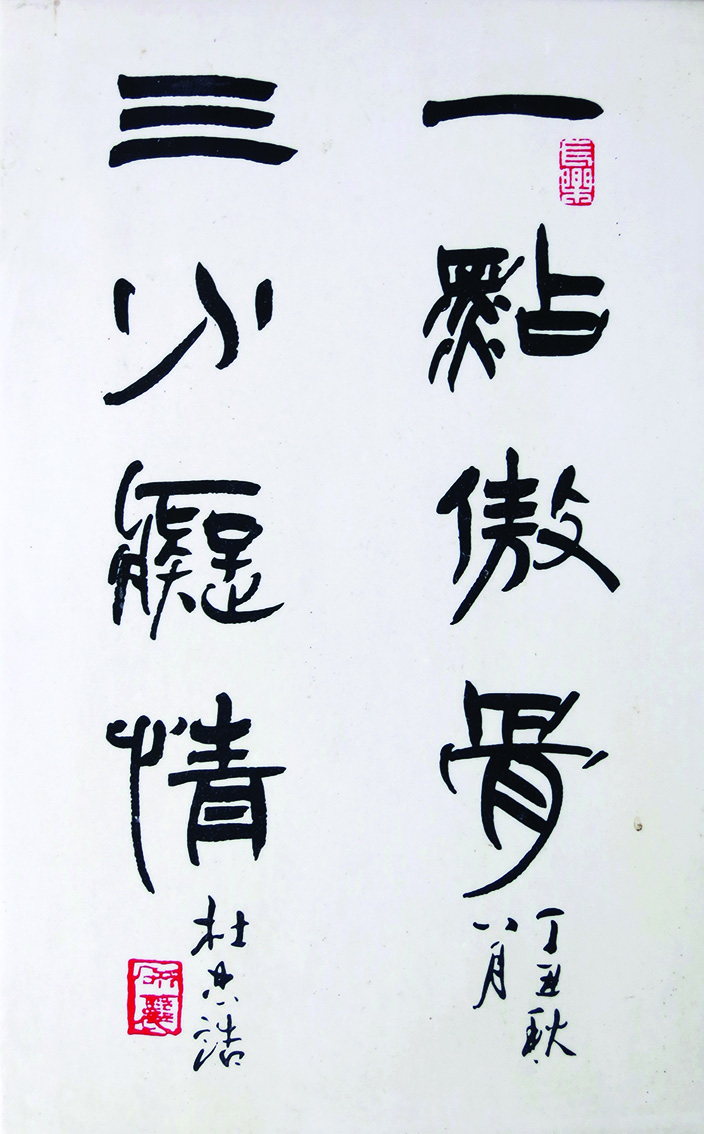 一點傲骨
長樂
丁丑秋
八月
三分癡情
杜忠誥